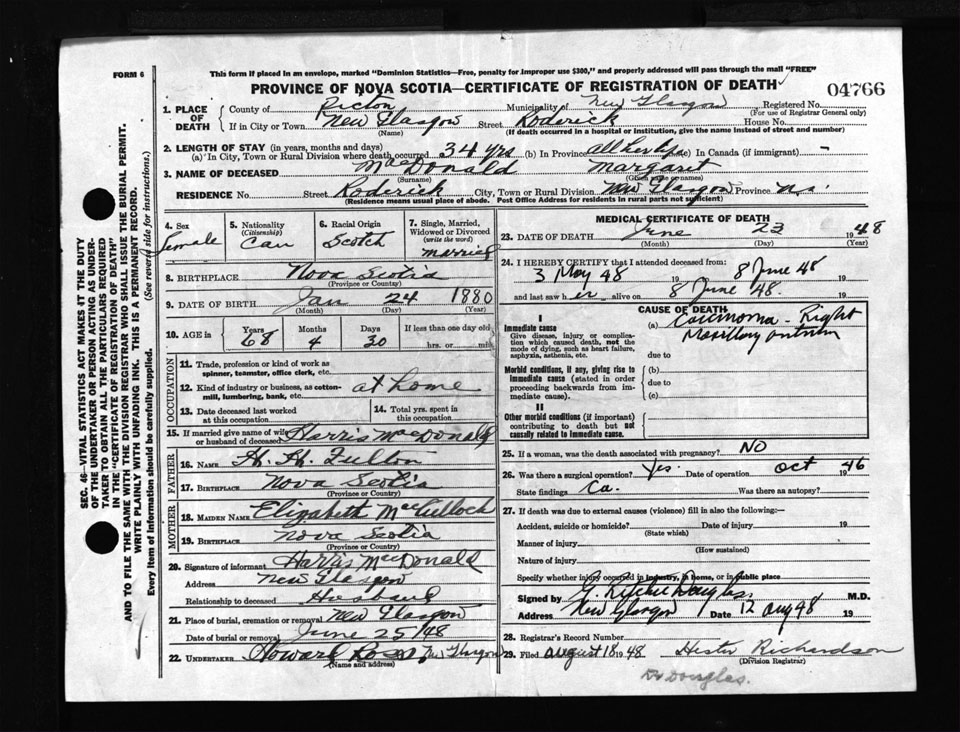 FORM 6
This form if placed in an envelope, marked "Dominion Statistics—Free, penalty for improper use $300," and properly addressed will pass through the mail "FREE"
PROVINCE OF NOVA SCOTIA—CERTIFICATE OF REGISTRATION OF DEATH
04766
1. PLACE OF DEATH
County of Pictou Municipality of New Glasgow Registered No.
(For use of Registrar General only)
If in City or Town New Glasgow Street Roderick House No.
(Name) (If death occurred in a hospital or institution, give the name instead of street and number)
2. LENGTH OF STAY (in years, months and days)
(a) In City, Town or Rural Division where death occurred 34 yrs (b) In Province all her life (c) In Canada (if immigrant) -
3. NAME OF DECEASED MacDonald Margaret
(Surname) (Given name or names)
RESIDENCE No. Street Roderick City, Town or Rural Division New Glasgow Province N.S.
(Residence means usual place of abode. Post Office Address for residents in rural parts not sufficient)
4. Sex female
5. Nationality (Citizenship) Can
6. Racial Origin Scotch
7. Single, Married, Widowed or Divorced (write the word) married
8. BIRTHPLACE Nova Scotia
(Province or Country)
9. DATE OF BIRTH Jan 24 1880
(Month) (Day) (Year)
10. AGE in Years Months Days If less than one day old
68 4 30 hrs. or min.
OCCUPATION
11. Trade, profession or kind of work as spinner, teamster, office clerk, etc.
12. Kind of industry or business, as cotton-mill, lumbering, bank, etc. at home
13. Date deceased last worked at this occupation
14. Total yrs. spent in this occupation
15. If married give name of wife or husband of deceased Harris MacDonald
FATHER
16. NAME H. H. Fulton
17. BIRTHPLACE Nova Scotia
(Province or Country)
MOTHER
18. MAIDEN NAME Elizabeth MacCullock
19. BIRTHPLACE Nova Scotia
(Province or Country)
20. Signature of informant Harris MacDonald
Address New Glasgow
Relationship to deceased Husband
21. Place of burial, cremation or removal New Glasgow
Date of burial or removal June 25/48
22. UNDERTAKER Howard Ross New Glasgow
(Name and address)
MEDICAL CERTIFICATE OF DEATH
23. DATE OF DEATH June 23 1948
(Month) (Day) (Year)
24. I HEREBY CERTIFY that I attended deceased from:
3 May 48 19 8 June 48 19
and last saw her alive on 8 June 48. 19
CAUSE OF DEATH
I
Immediate cause
Give disease, injury or complication which caused death, not the mode of dying, such as heart failure, asphyxia, asthenia, etc.
(a) Carcinoma - Right
Maxillary antrum
due to
Morbid conditions, if any, giving rise to immediate cause (stated in order proceeding backwards from immediate cause).
(b)
due to
(c)
II
Other morbid conditions (if important) contributing to death but not causally related to immediate cause.
25. If a woman, was the death associated with pregnancy? NO
26. Was there a surgical operation? Yes. Date of operation Oct 1946
State findings Ca. Was there an autopsy?
27. If death was due to external causes (violence) fill in also the following:—
Accident, suicide or homicide? Date of injury 19
(State which)
Manner of injury
(How sustained)
Nature of injury
Specify whether injury occurred in industry, in home, or in public place
Signed by G. Ritchie Douglas. M.D.
Address New Glasgow Date 12 Aug 48 19
28. Registrar's Record Number
29. Filed August 18 1948 Hester Richardson
(Division Registrar)
Dr Douglas.
SEC. 46—VITAL STATISTICS ACT MAKES IT THE DUTY
OF THE UNDERTAKER OR PERSON ACTING AS UNDER-
TAKER TO OBTAIN ALL THE PARTICULARS REQUIRED
IN THE "CERTIFICATE OF REGISTRATION OF DEATH"
AND TO FILE THE SAME WITH THE DIVISION REGISTRAR WHO SHALL ISSUE THE BURIAL PERMIT.
WRITE PLAINLY WITH UNFADING INK. THIS IS A PERMANENT RECORD.
Every item of Information should be carefully supplied. (See reverse side for instructions.)